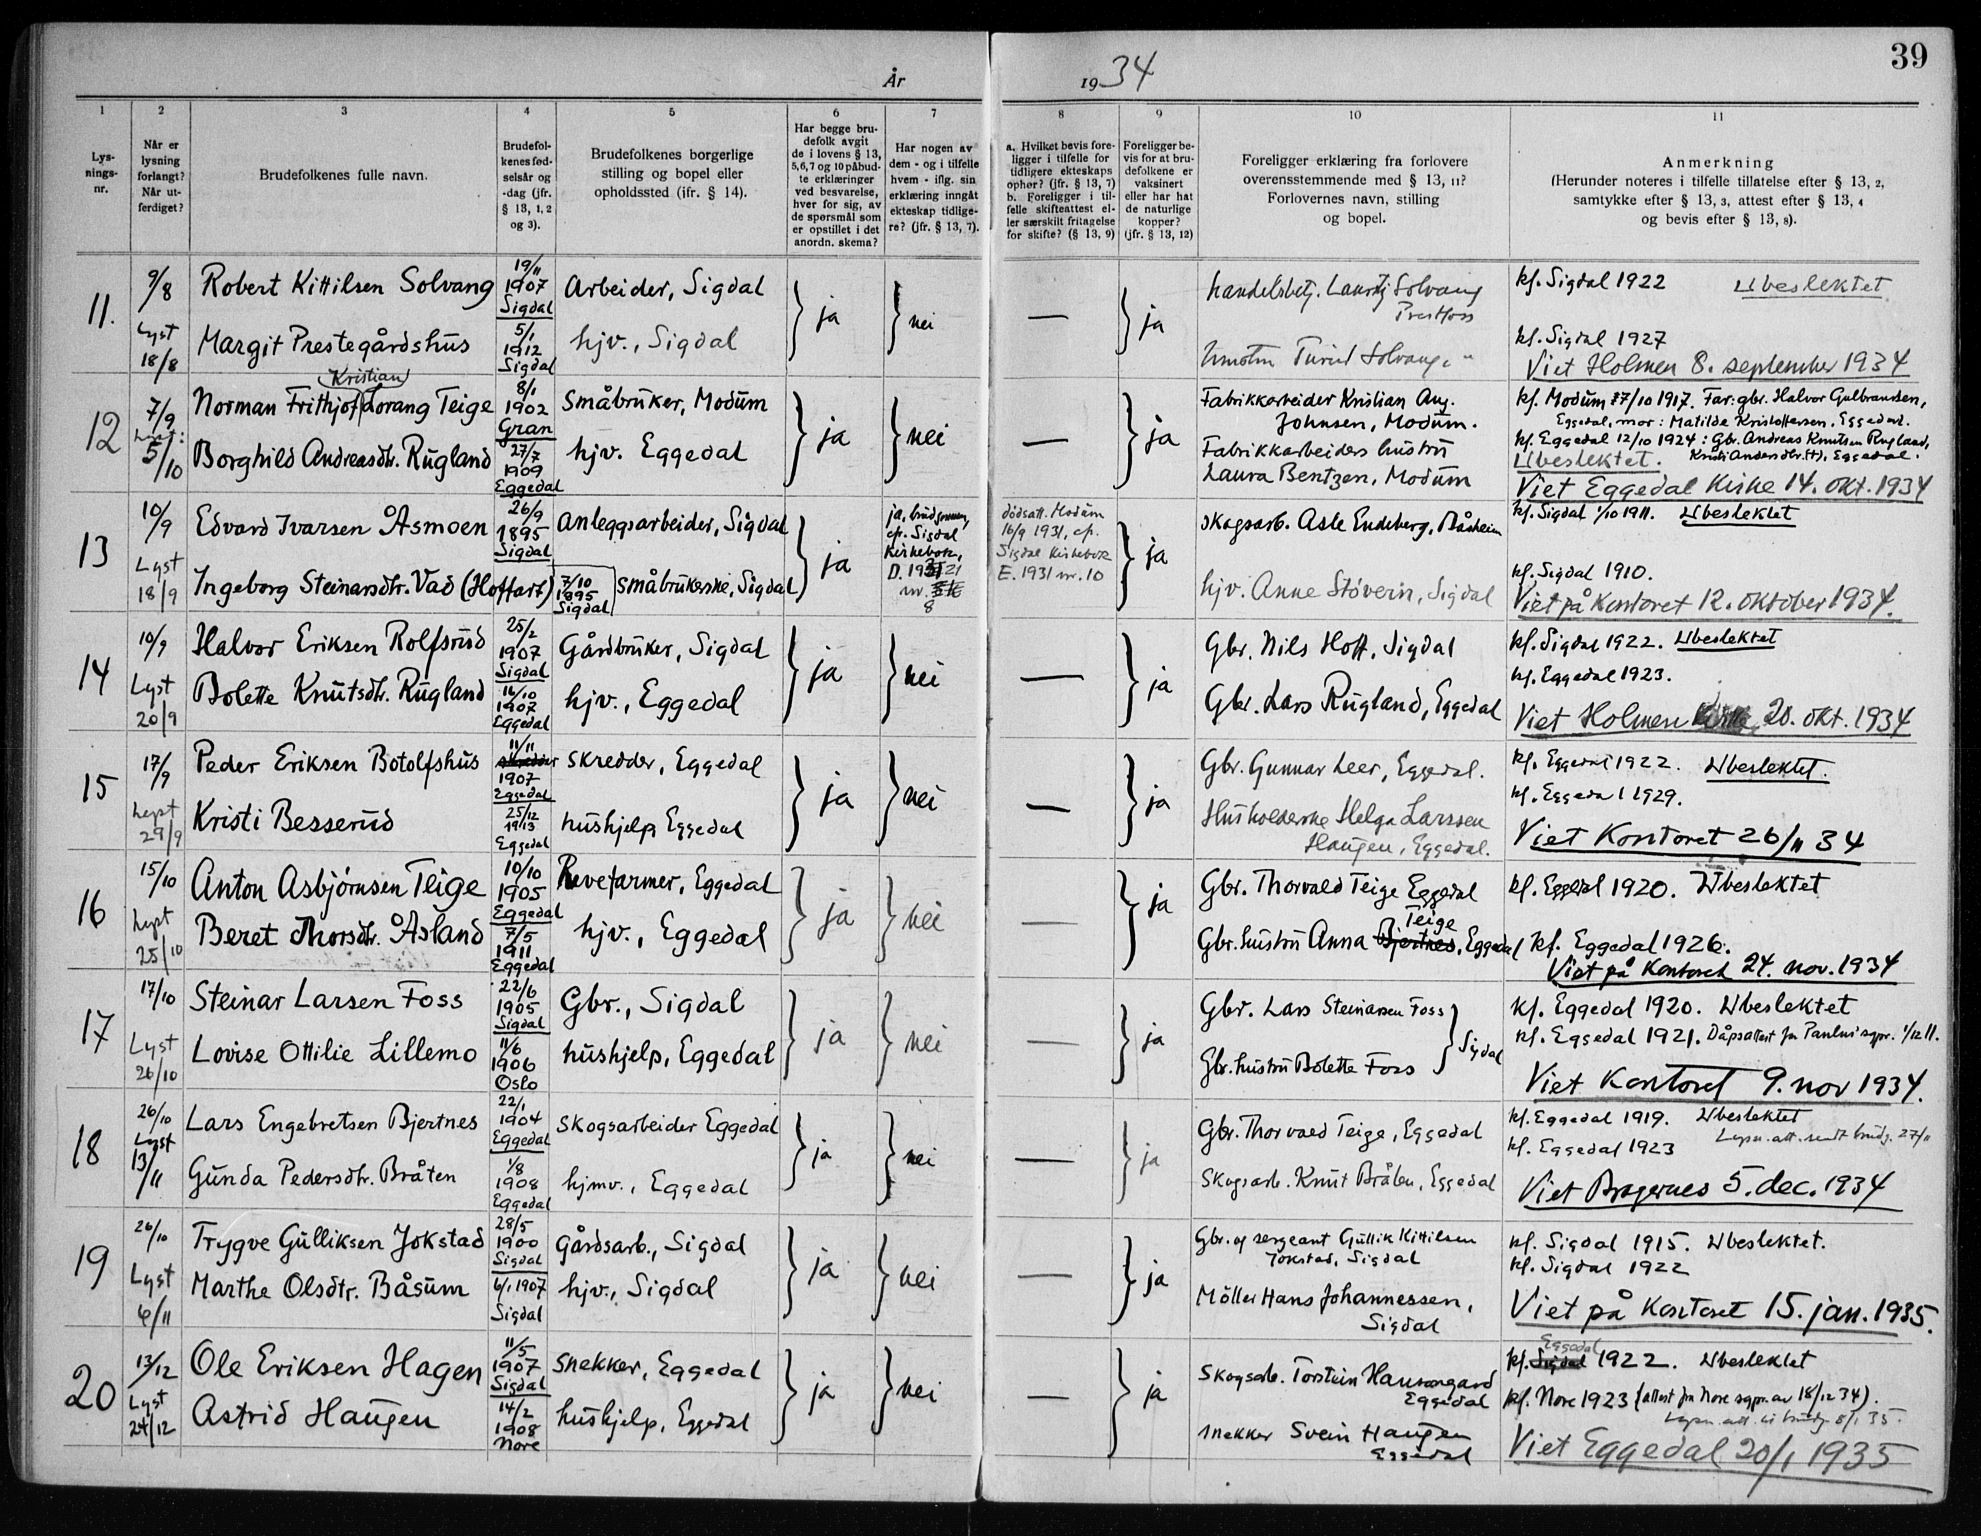 39
År 1934
1 2 3 4 5 6 7 8 9 10 11
Lys-
nings-
nr.
Når er
lysning
forlangt?
Når ut-
ferdiget?
Brudefolkenes fulle navn.
Brudefol-
kenes fød-
selsår og
-dag (jfr.
§ 13, 1, 2
og 3).
Brudefolkenes borgerlige
stilling og bopel eller
opholdssted (ifr. § 14).
Har begge bru-
defolk avgit
de i lovens § 13,
5,6,7 og 10 påbud-
te erklæringer
ved besvarelse,
hver for sig, av
de spørsmål som
er opstillet i det
anordn. skema?
Har nogen av
dem - og i tilfelle
hvem - iflg. sin
erklæring inngåt
ekteskap tidlige-
re? (jfr. § 13, 7).
a. Hvilket bevis fore-
ligger i tilfelle for
tidligere ekteskaps
ophør? (jfr. § 13, 7)
b. Foreligger i til-
felle skifteattest el-
ler særskilt fritagelse
for skifte? (§ 13, 9)
Foreligger be-
vis for at bru-
defolkene er
vaksinert
eller har hat
de naturlige
kopper?
(jfr. § 13, 12)
Foreligger erklæring fra forlovere
overensstemmende med § 13, 11?
Forlovernes navn, stilling
og bopel.
Anmerkning
(Herunder noteres i tilfelle tillatelse efter § 13, 2,
samtykke efter § 13, 3, attest efter § 13, 4
og bevis efter § 13, 8).
11.
9/8
Lyst
18/8
Robert Kittilsen Solvang
Margit Prestegårdshus
19/11
1907
Sigdal
5/1
1912
Sigdal
Arbeider, Sigdal
hjv., Sigdal
ja
nei
—
ja
handelsbetj. Lauritz Solvang
Prestfoss
Turid Solvang, "
kf. Sigdal 1922 Ubeslektet
kf. Sigdal 1927
Viet Holmen 8. september 1934
12
7/9
Lyst:
5/10
Kristian
Norman Frithjof Lorang Teige
Borghild Andreasdtr. Rugland
8/1
1902
Gran
27/7
1909
Eggedal
Småbruker, Modum
hjv. Eggedal
ja
nei
—
ja
Fabrikkarbeider Kristian Aug.
Johnsen, Modum.
Fabrikkarbeiders hustru
Laura Bentzen, Modum
kf. Modum 7/10 1917. Far: gbr. Halvor Gulbrandsen,
Eggedal, mor: Matilde Kristoffersen, Eggedal.
kf. Eggedal 12/10 1924: Gbr. Andreas Knutsen Rugland,
Ubeslektet. Kristi Andersdtr. Eggedal.
Viet Eggedal Kirke 14. okt. 1934
13
10/9
Lyst
18/9
Edvard Ivarsen Åsmoen
Ingeborg Steinarsdtr. Vad (Hoffart)
26/9
1895
Sigdal
7/10
1895
Sigdal
Anleggsarbeider, Sigdal
Småbrukerske, Sigdal
ja
ja, brudgommen,
cfr. Sigdal
Kirkebok,
D. 1921
nr.
8
dödsatt. Modum
16/9 1931, cfr.
Sigdal Kirkebok
E. 1931 nr. 10
ja
Skogsarb. Asle Endeberg, Båsheim
hjv. Anne Støvern, Sigdal
kf. Sigdal 1/10 1911. Ubeslektet
kf. Sigdal 1910.
Viet på Kontoret 12. oktober 1934.
14
10/9
Lyst
20/9
Halvor Eriksen Rolfsrud
Bolette Knutsdtr. Rugland
25/2
1907
Sigdal
16/10
1907
Eggedal
Gårdbruker, Sigdal
hjv., Eggedal
ja
nei
—
ja
Gbr. Nils Hoff, Sigdal
Gbr. Lars Rugland, Eggedal
kf. Sigdal 1922. Ubeslektet
kf. Eggedal 1923.
Viet Holmen Kirke 20. okt. 1934
15
17/9
Lyst
29/9
Peder Eriksen Botolfshus
Kristi Besserud
11/11
skredder
1907
Eggedal
25/12
1913
Eggedal
Skredder, Eggedal
hushjelp Eggedal
ja
nei
—
ja
Gbr. Gunnar Leer, Eggedal.
Husholderske Helga Larssen
Haugen, Eggedal.
kf. Eggedal 1922. Ubeslektet.
kf. Eggedal 1929.
Viet Kontoret 26/11 34
16
15/10
Lyst
25/10
Anton Asbjörnsen Teige
Beret Thorsdtr. Åsland
10/10
1905
Eggedal
7/5
1911
Eggedal
Revefarmer, Eggedal
hjv., Eggedal
ja
nei
—
ja
Gbr. Thorvald Teige Eggedal
Teige
Gbr. hustru Anna Bjertnes, Eggedal
kf. Eggedal 1920. Ubeslektet
kf. Eggedal 1926.
Viet på Kontoret 24. nov. 1934
17
17/10
Lyst
26/10
Steinar Larsen Foss
Lovise Ottilie Lillemo
22/6
1905
Sigdal
11/6
1906
Oslo
Gbr., Sigdal
hushjelp, Eggedal
ja
nei
—
ja
Gbr. Lars Steinarsen Foss
Sigdal
Gbr. hustru Bolette Foss
kf. Eggedal 1920. Ubeslektet
kf. Eggedal 1921. Dåpsattest fra Paulus sgpr. 1/12 11.
Viet Kontoret 9. nov 1934.
18
26/10
Lyst
13/11
Lars Engebretsen Bjertnes
Gunda Pedersdtr. Bråten
22/1
1904
Eggedal
1/8
1908
Eggedal
Skogsarbeider Eggedal
hjmv., Eggedal
ja
nei
—
ja
Gbr. Thorvald Teige, Eggedal
Skogsarb. Knut Bråten, Eggedal
kf. Eggedal 1919. Ubeslektet
Lysn. att. sendt brudg. 27/11
kf. Eggedal 1923
Viet Bragernes 5. dec. 1934
19
26/10
Lyst
6/11
Trygve Gulliksen Jokstad
Marthe Olsdtr. Båsum
28/5
1900
Sigdal
6/1 1907
Sigdal
Gårdsarb., Sigdal
hjv., Sigdal
ja
nei
—
ja
Gbr. og sergeant Gullik Kittilsen
Jokstad, Sigdal
Möller Hans Johannessen,
Sigdal
kf. Sigdal 1915. Ubeslektet.
kf. Sigdal 1922
Viet på Kontoret 15. jan. 1935.
20
13/12
Lyst
24/12
Ole Eriksen Hagen
Astrid Haugen
11/5
1907
Sigdal
14/2
1908
Nore
Snekker, Eggedal
hushjelp, Eggedal
ja
nei
—
ja
Skogsarb. Torstein
Eggedal
Snekker Svein Haugen
Eggedal
Eggedal
kf. Sigdal 1922. Ubeslektet
kf. Nore 1923 (attest fra Nore sgpr. av 18/12 34).
Lysn. att. til brudg. 8/1 35.
Viet Eggedal 20/1 1935